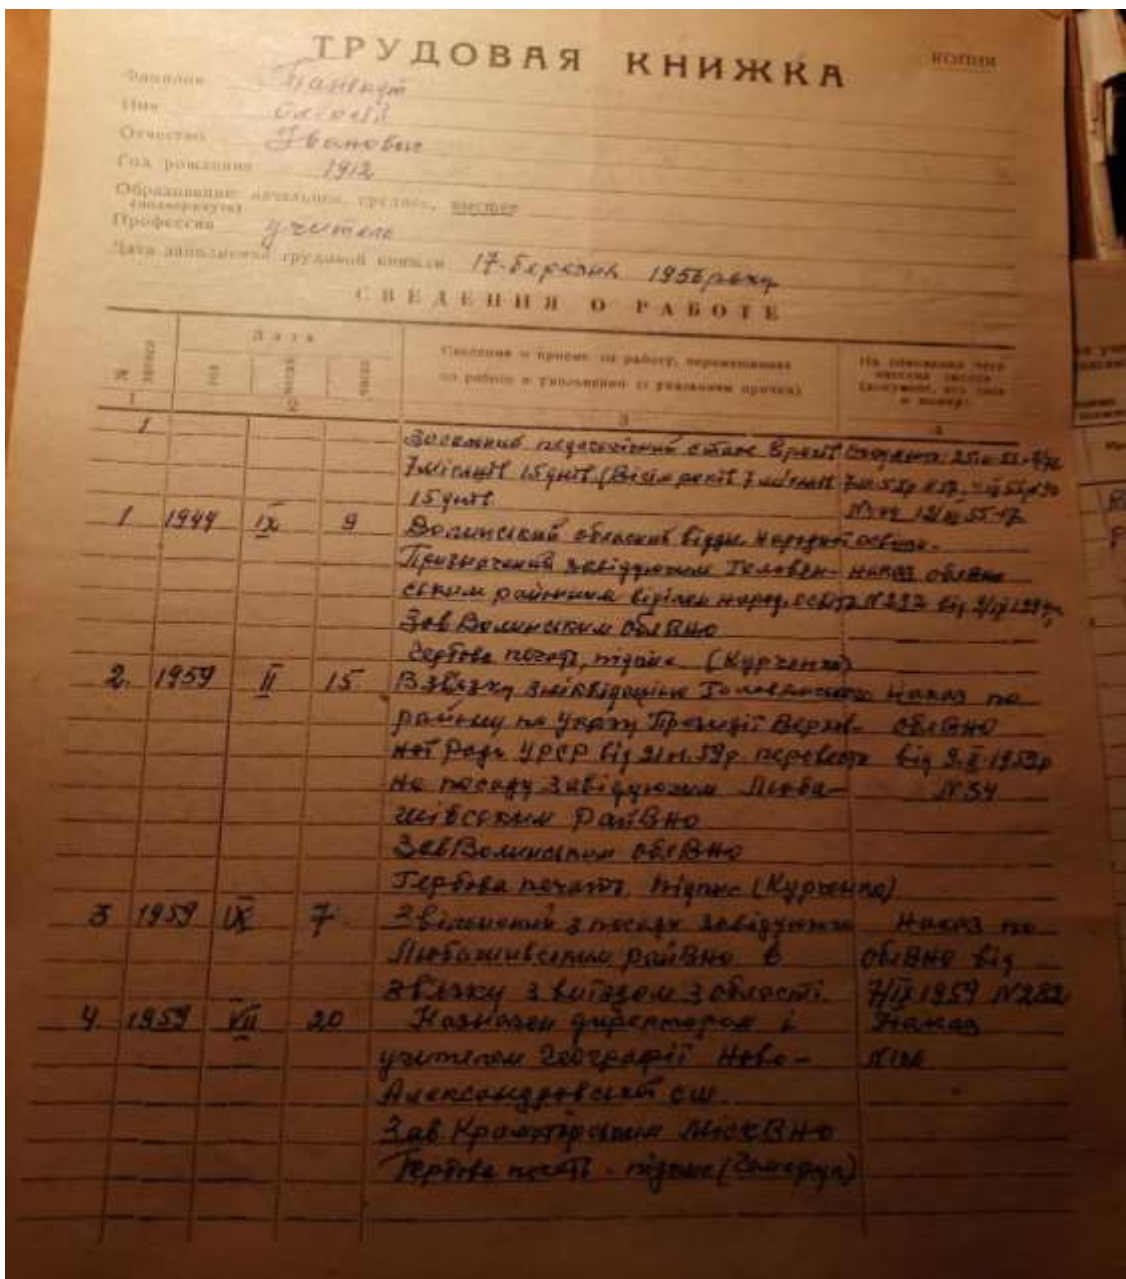 ТРУДОВАЯ КНИЖКА
КОПИЯ
Фамилия
Имя
Отчество Іванович
Год рождения 1912
Образование: начальное, среднее, высшее
(подчеркнуть)
Профессия учитель
Дата заполнения трудовой книжки 17 березня 1956 року
СВЕДЕНИЯ О РАБОТЕ
№ записи
Дата
год
месяц
число
Сведения о приеме на работу, перемещениях
по работе и увольнении (с указанием причин)
На основании чего
внесена запись
(документ, его дата
и номер)
1 2 3 4
1
Загальний педагогічний стаж 8 років
7 місяців 15 днів (Вісім років 7 місяців
15 днів
1 1947 IX 9 Волинський обласний відділ народної освіти.
Призначений завідуючим Головен- наказ облвно
ським районним відділом народ. освіти №297 від
Зав Волинським облВно
Гербова печать, підпис (Курченко)
2. 1959 II 15 В зв'язку з ліквідацією Головенського Наказ по
району по указу Президії Верхов- облВно
ної Ради УРСР від 21 59р. перевести від 9.II.1959р
на посаду завідуючим Люба- №54
шівським РайВно
Зав Волинським облВно
Гербова печать, підпис (Курченко)
3 1959 IX 7 Звільнений з посади завідуючим Наказ по
Любашівським райВно в облВно від
зв'язку з виїздом з області. 7/IX 1959 №282
4. 1959 VII 20 Назначен директором і Наказ
учителем географії Ново-
Александровської сш
Зав Краматорським МіськВно
Гербова печать - підпис